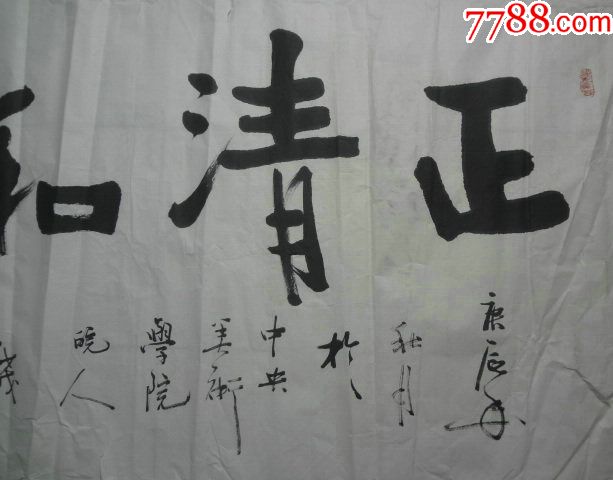 7788.com
正清和
庚辰年
秋月
於
中央
美術
學院
皖人
茂